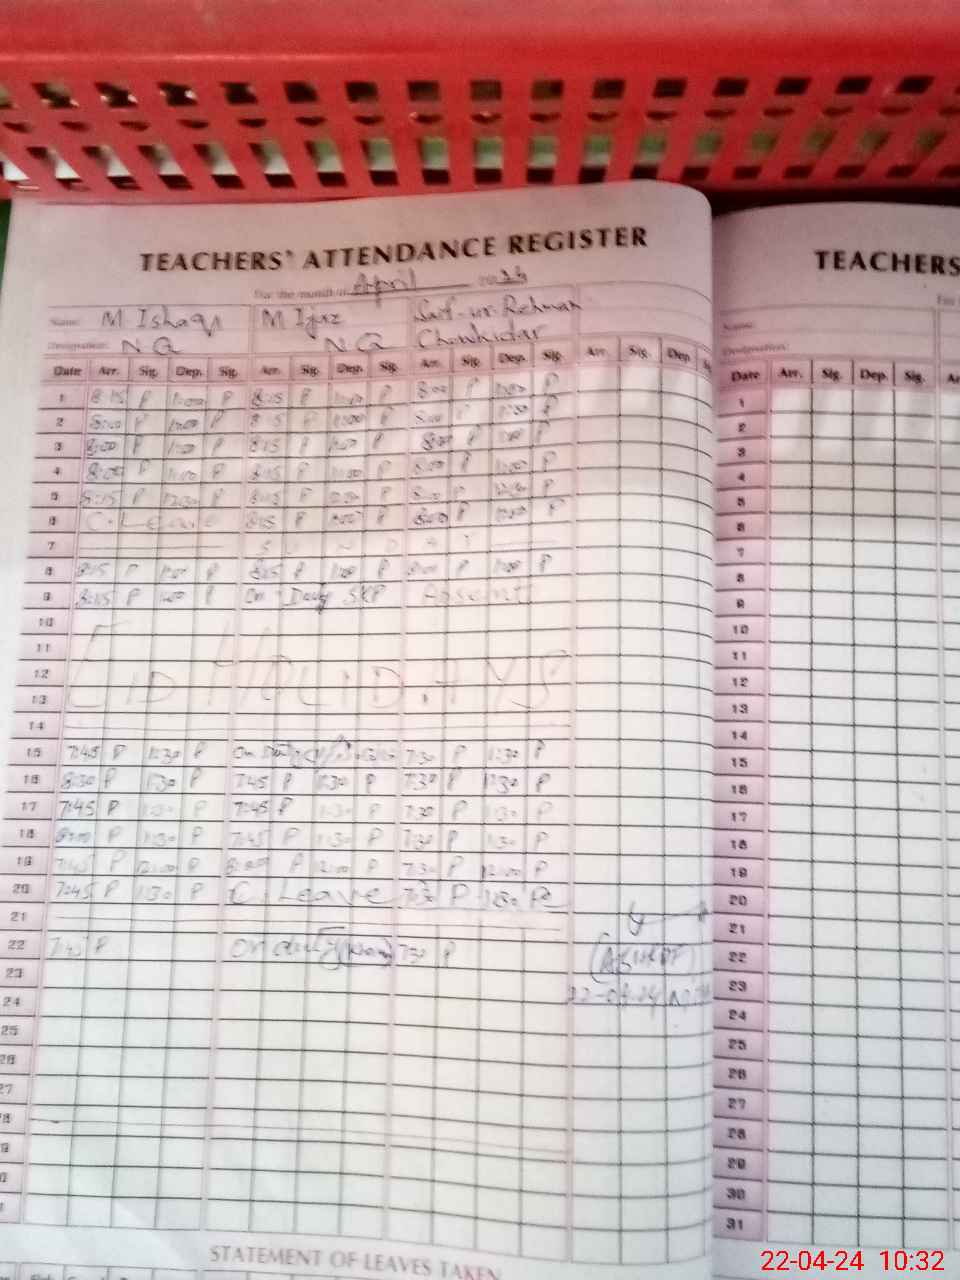 TEACHERS' ATTENDANCE REGISTER
TEACHERS
For the month of April
Name: M. Ishaq M Ijaz Saif-ur-Rehman
Name:
Designation: N Q N Q Chowkidar
Designation:
Date Arr. Sig. Dep. Sig. Arr. Sig. Dep. Sig. Arr. Sig. Dep. Sig. Arr. Sig. Dep
Date Arr. Sig. Dep. Sig.
1 8:15 P 11:00 P 8:15 P 11:00 P 8:00 P 11:00 P
2 8:00 P 11:00 P 8:15 P 11:00 P 8:00 P 11:00 P
3 8:00 P 11:00 P 8:15 P 11:00 P 8:00 P 11:00 P
4 8:00 P 11:00 P 8:15 P 11:00 P 8:00 P 11:00 P
5 8:15 P 12:30 P 8:15 P 12:30 P 8:00 P 12:30 P
6 C. Leave 8:15 P 11:00 P 8:00 P 11:00 P
7 S U N D A Y
8 8:15 P 1:00 P 8:15 P 1:00 P 8:00 P 1:00 P
9 8:15 P 1:00 P On Duty SKP Absent
10
11
12 EID HOLIDAYS
13
14
15 7:45 P 1:30 P On Duty 7:30 P 1:30 P
16 8:30 P 1:30 P 7:45 P 1:30 P 7:30 P 1:30 P
17 7:45 P 1:30 P 7:45 P 1:30 P 7:30 P 1:30 P
18 8:00 P 1:30 P 7:45 P 1:30 P 7:30 P 1:30 P
19 7:45 P 12:00 P 8:00 P 12:00 P 7:30 P 12:00 P
20 7:45 P 1:30 P C. Leave 7:30 P 1:30 P
21
22 7:45 P On duty 7:30 P
(ASHRAF)
23
22-04-24
24
25
26
27
28
STATEMENT OF LEAVES TAKEN
1
2
3
4
5
6
7
8
9
10
11
12
13
14
15
16
17
18
19
20
21
22
23
24
25
26
27
28
29
30
31
22-04-24 10:32